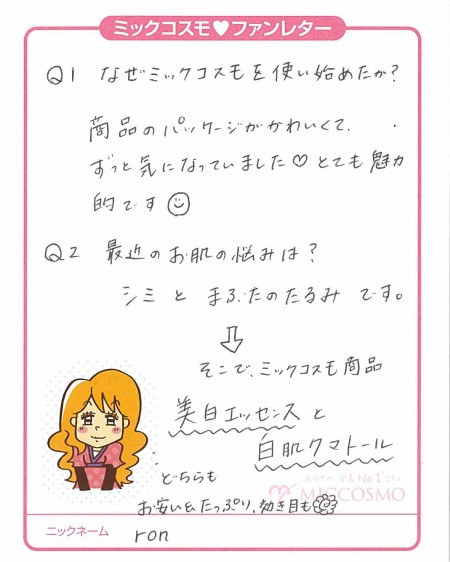 ミックコスモ♥ファンレター
Q1 なぜミックコスモを使い始めたか?
商品のパッケージがかわいくて、
ずっと気になっていました♡とても魅力
的です☺
Q2 最近のお肌の悩みは?
シミ と まぶたのたるみ です。
⇩
そこで、ミックコスモ商品
美白エッセンスと
白肌クマトール
どちらも
No.1
MICCOSMO
お安い&たっぷり、効き目も
ニックネーム ron